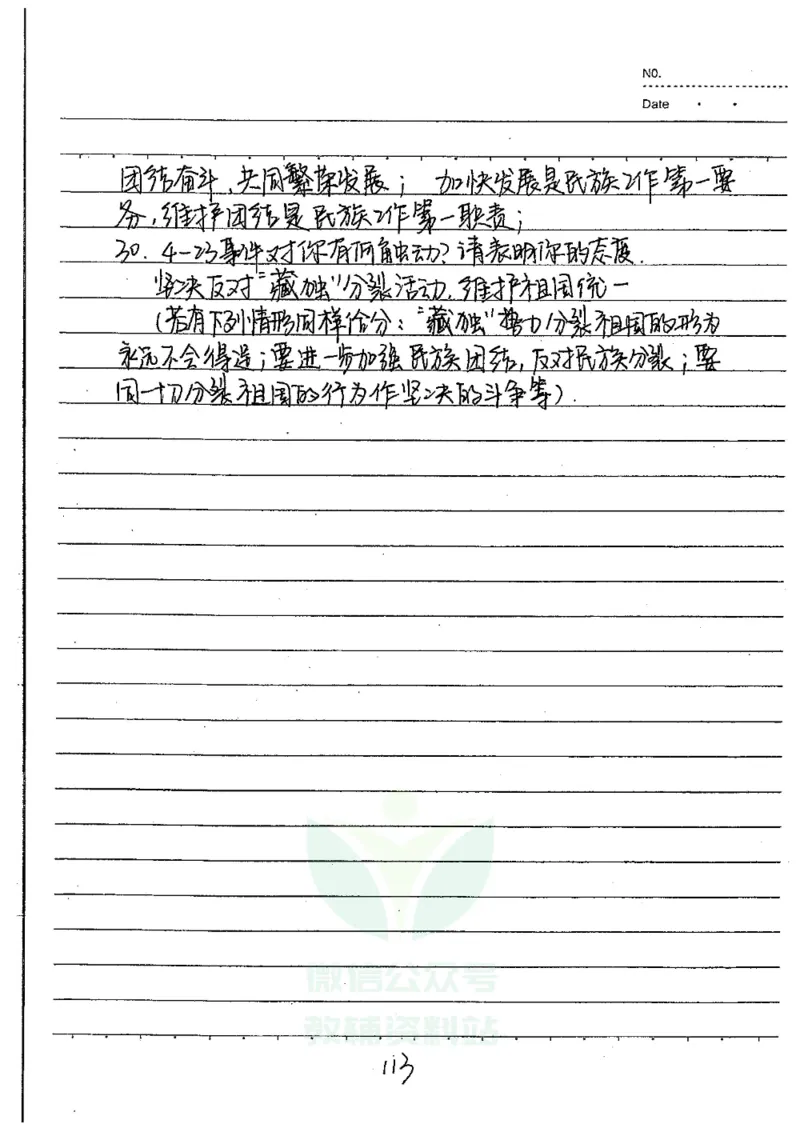 NO.
Date
团结奋斗,共同繁荣发展; 加快发展是民族工作第一要
务,维护团结是民族工作第一职责;
30. 4-23事件对你有何触动?请表明你的态度.
坚决反对“藏独”分裂活动,维护祖国统一
(若有下列情形同样给分:“藏独”势力分裂祖国的形为
永远不会得逞;要进一步加强民族团结,反对民族分裂;要
同一切分裂祖国的行为作坚决的斗争等).
微信公众号
教辅资料站
113